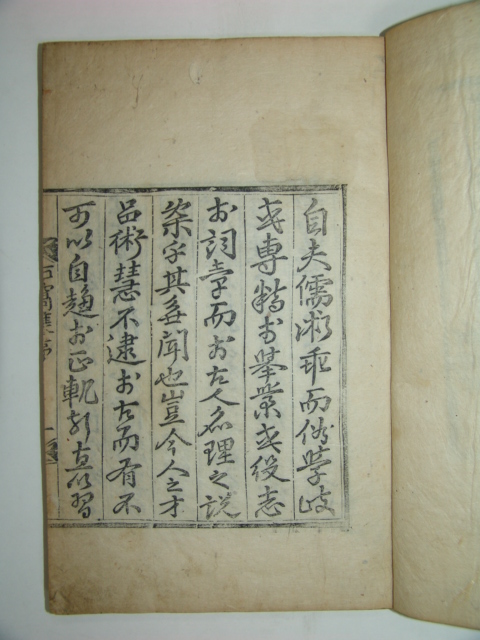 自夫儒術乖而學歧
或專精扵擧業或役志
扵詞章而扵古人名理之說
槩乎其無聞也豈今人之才
品術慧不逮扵古而有不
可以自趨扵正軌直以習
序 一